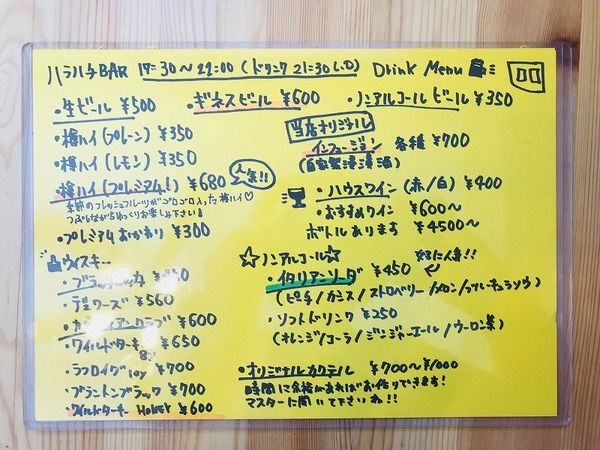 ハラハチBAR 17:30~22:00 (ドリンク 21:30 L.O) Drink Menu
・生ビール ¥500 ・ギネスビール ¥600 ・ノンアルコールビール ¥350
・樽ハイ (プレーン) ¥350
・樽ハイ (レモン) ¥350
・樽ハイ (プレミアム!) ¥680 人気!!
季節のフレッシュフルーツがゴロゴロ入った樽ハイ♡
つぶしながらゆっくりお楽しみ下さい!
・プレミアムおかわり ¥300
当店オリジナル
インフュージョン 各種 ¥700
(自家製浸漬酒)
・ハウスワイン (赤/白) ¥400
・おすすめワイン ¥600~
ボトルあります ¥4500~
ウィスキー
・ブラックニッカ
・デュワーズ ¥560
・カナディアンクラブ ¥600
・ワイルドターキー ¥650
8年
・ラフロイグ 10y ¥700
・ブラントンブラック ¥700
・ワイルドターキー HONEY ¥600
☆ノンアルコール☆
・イタリアンソーダ ¥450 女子に人気!!
(ピーチ/カシス/ストロベリー/メロン/ブルーキュラソウ)
・ソフトドリンク ¥250
(オレンジ/コーラ/ジンジャーエール/ウーロン茶)
・オリジナルカクテル ¥700~¥1000
時間に余裕があればお作りできます!
マスターに聞いて下さいね!!